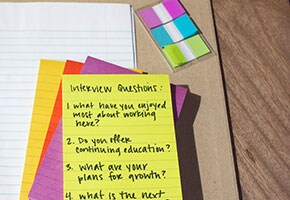 Interview Questions:
1 what have you enjoyed
most about working
here?
2. Do you offer
continuing education?
3. what are your
plans for growth?
4. what is the next